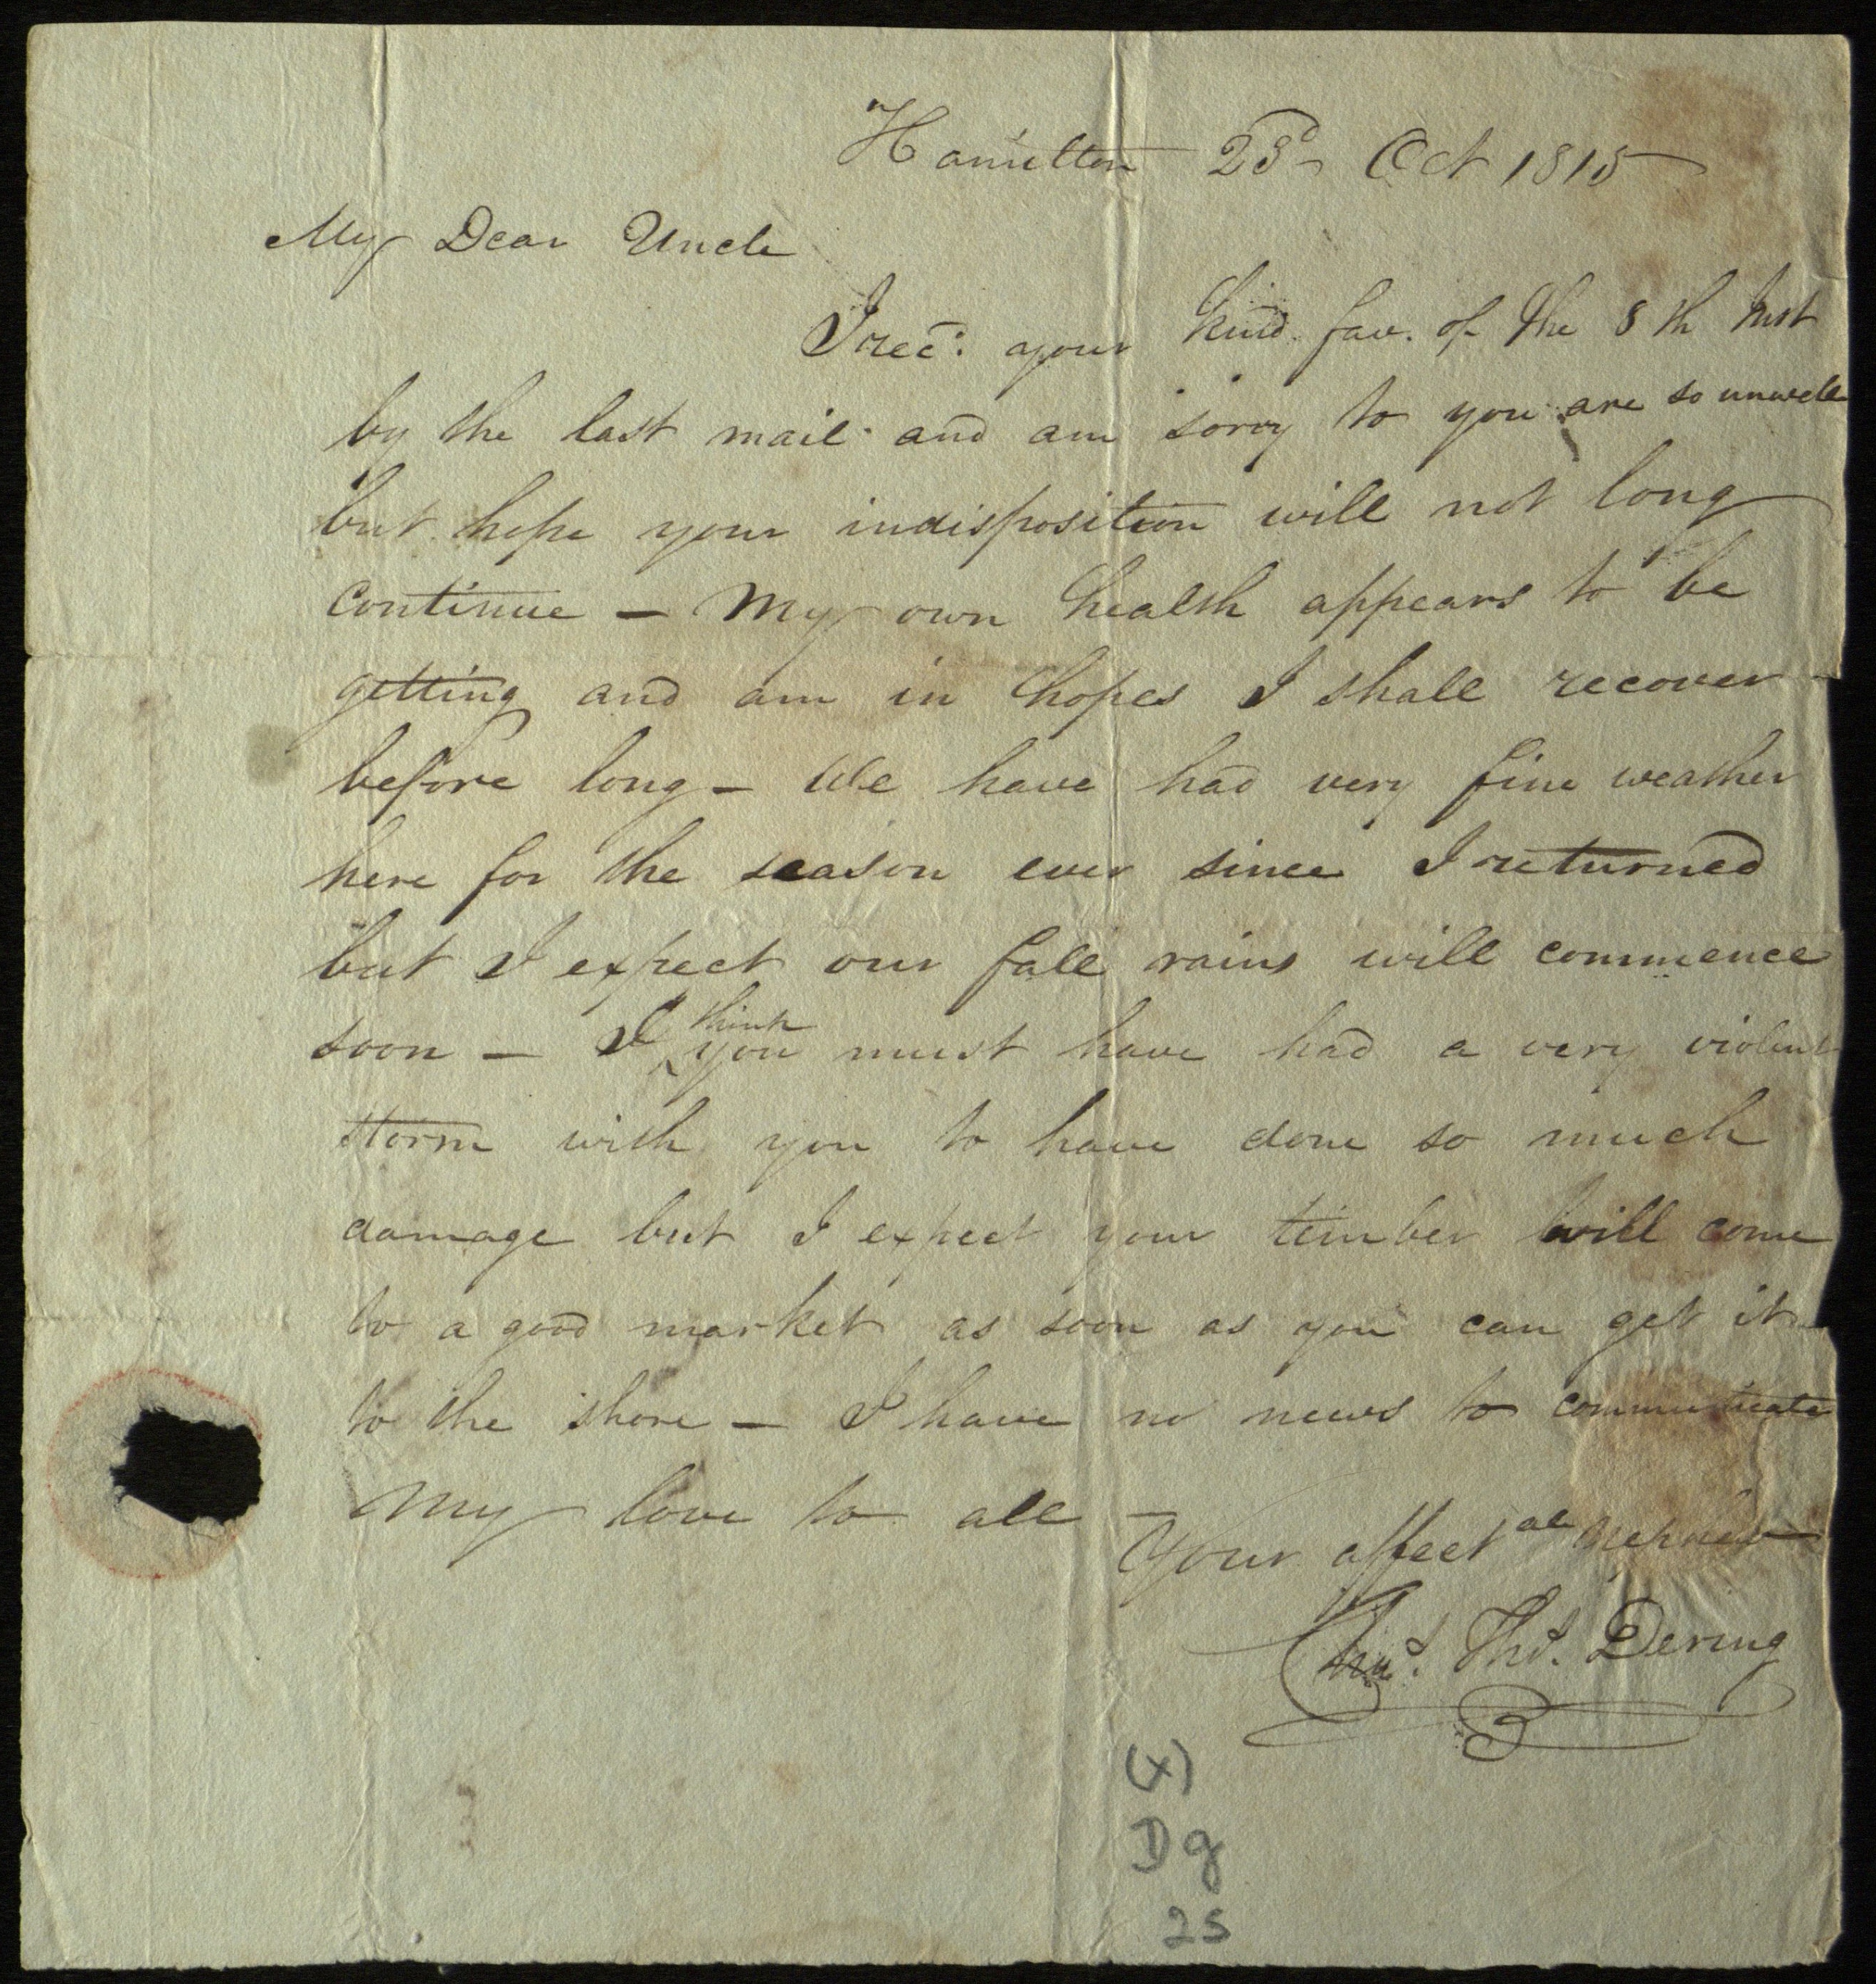 Hamilton 23d Oct 1815
My Dear Uncle
I recd. your kind fav. of the 8th Inst
by the last mail and am sorry to you are so unwell
but hope your indisposition will not long
continue – My own health appears to be
getting and am in hopes I shall recover
before long – We have had very fine weather
here for the season ever since I returned
but I expect our fall rains will commence
soon – I think you must have had a very violent
storm with you to have done so much
damage but I expect your timber will come
to a good market as soon as you can get it
to the shore – I have no news to communicate
My love to all –
Your affectate Nephew
Thos. Dering
(X)
Dg
25